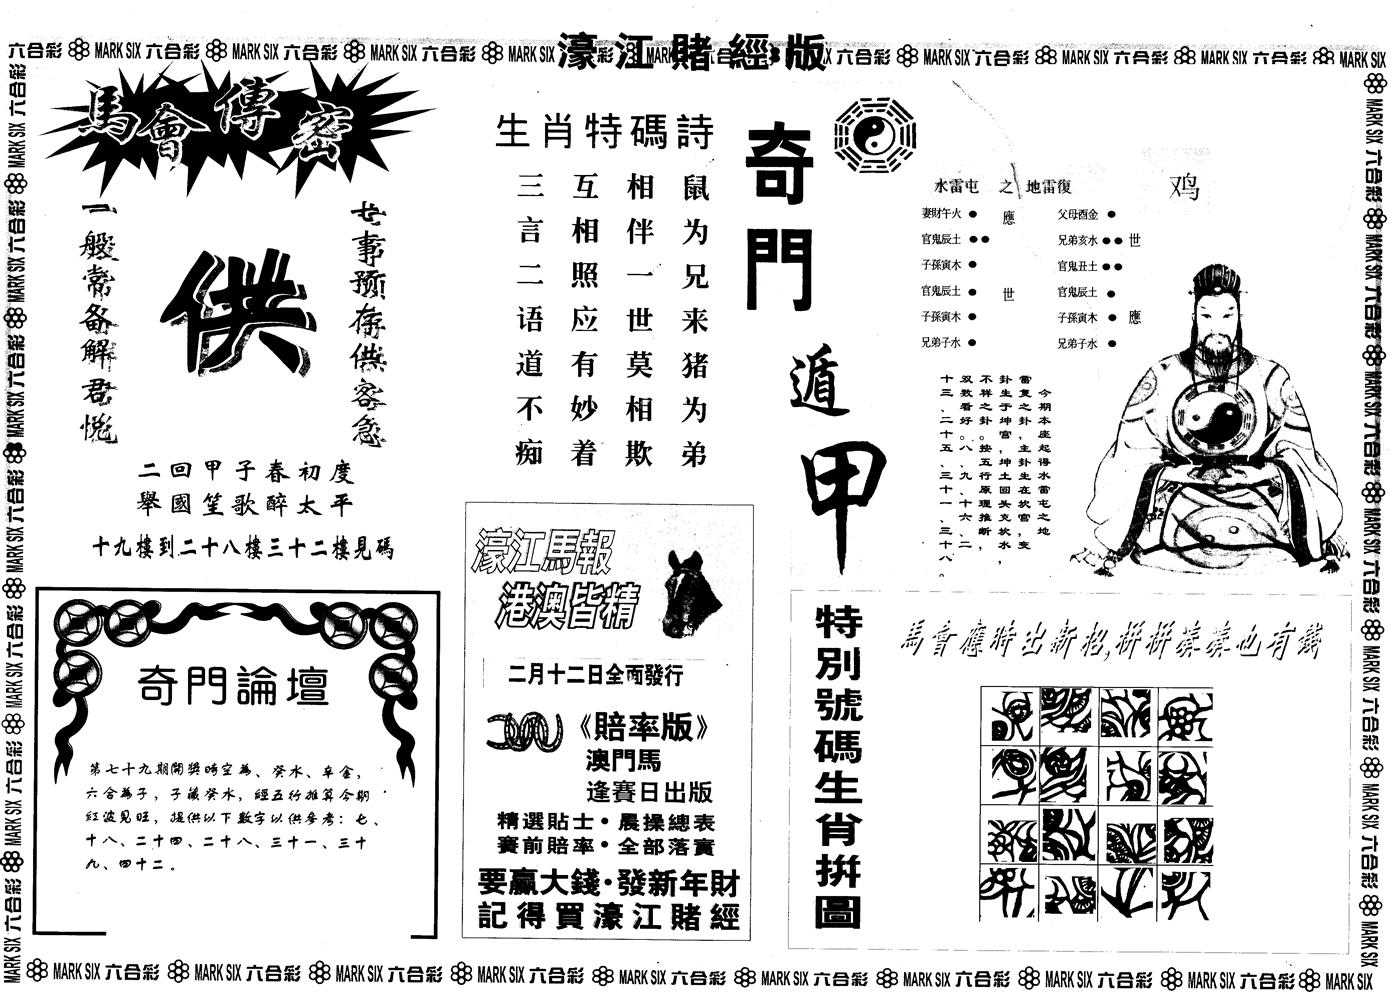 濠江賭經版
六合彩 MARK SIX 六合彩 MARK SIX 六合彩 MARK SIX 六合彩 MARK SIX
六合彩 MARK SIX 六合彩 MARK SIX 六合彩 MARK SIX 六合彩 MARK SIX
馬會傳密
廿事预存供客急
一般常备解君愧
供
二回甲子春初度
舉國笙歌醉太平
十九樓到二十八樓三十二樓見碼
生肖特碼詩
鼠为兄来猪为弟
相伴一世莫相欺
互相照应有妙着
三言二语道不痴
奇門遁甲
鸡
水雷屯 之 地雷復
妻財午火 應 父母酉金
官鬼辰土 兄弟亥水 世
子孫寅木 官鬼丑土
官鬼辰土 世 官鬼辰土
子孫寅木 子孫寅木 應
兄弟子水 兄弟子水
今期本座起得水雷屯之地
雷复之卦，主卦生在坎宫，变
卦生于坤宫，坤土回头克坎水，
不祥之卦。按五行原理推断，
双数看好。八、九、十六、二
十三、二十五、三十一、三十八。
奇門論壇
第七十九期開獎時空為、癸水、辛金，
六合為子，子藏癸水，經五行推算今期
紅波見旺，提供以下數字以供參考：七、
十八、二十四、二十八、三十一、三十
九、四十二。
濠江馬報
港澳皆精
二月十二日全面發行
《賠率版》
澳門馬
逢賽日出版
精選貼士·晨操總表
賽前賠率·全部落實
要贏大錢·發新年財
記得買濠江賭經
特別號碼生肖拼圖
馬會應時出新招,拼拼湊湊也有錢
MARK SIX 六合彩 MARK SIX 六合彩 MARK SIX 六合彩 MARK SIX 六合彩 MARK SIX 六合彩 MARK SIX 六合彩 MARK SIX 六合彩 MARK SIX 六合彩 MARK SIX 六合彩 MARK SIX